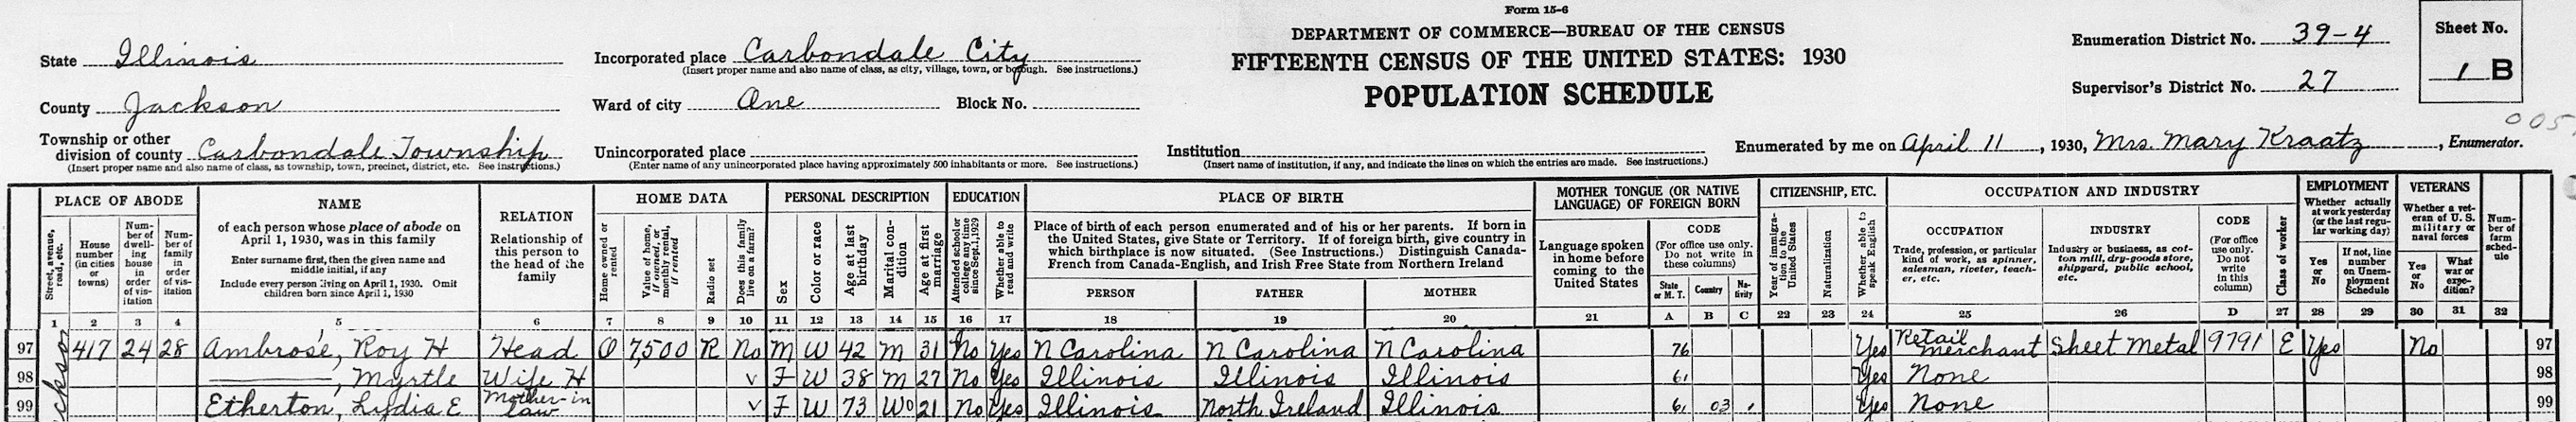 Form 15-6
DEPARTMENT OF COMMERCE—BUREAU OF THE CENSUS
FIFTEENTH CENSUS OF THE UNITED STATES: 1930
POPULATION SCHEDULE
State Illinois
County Jackson
Township or other division of county Carbondale Township
(Insert proper name and also name of class, as township, town, precinct, district, etc. See instructions.)
Incorporated place Carbondale City
(Insert proper name and also name of class, as city, village, town, or borough. See instructions.)
Ward of city One Block No.
Unincorporated place
(Enter name of any unincorporated place having approximately 500 inhabitants or more. See instructions.)
Institution
(Insert name of institution, if any, and indicate the lines on which the entries are made. See instructions.)
Enumeration District No. 39-4
Supervisor's District No. 27
Sheet No.
1 B
005
Enumerated by me on April 11, 1930, Mrs. Mary Kraatz, Enumerator.
PLACE OF ABODE
Street, avenue, road, etc.
House number (in cities or towns)
Number of dwelling house in order of visitation
Number of family in order of visitation
NAME
of each person whose place of abode on April 1, 1930, was in this family
Enter surname first, then the given name and middle initial, if any
Include every person living on April 1, 1930. Omit children born since April 1, 1930
RELATION
Relationship of this person to the head of the family
HOME DATA
Home owned or rented
Value of home, if owned, or monthly rental, if rented
Radio set
Does this family live on a farm?
PERSONAL DESCRIPTION
Sex
Color or race
Age at last birthday
Marital condition
Age at first marriage
EDUCATION
Attended school or college any time since Sept. 1, 1929
Whether able to read and write
PLACE OF BIRTH
Place of birth of each person enumerated and of his or her parents. If born in the United States, give State or Territory. If of foreign birth, give country in which birthplace is now situated. (See Instructions.) Distinguish Canada-French from Canada-English, and Irish Free State from Northern Ireland
PERSON FATHER MOTHER
MOTHER TONGUE (OR NATIVE LANGUAGE) OF FOREIGN BORN
Language spoken in home before coming to the United States
CODE
(For office use only. Do not write in these columns)
State or M. T. Country Nativity
CITIZENSHIP, ETC.
Year of immigration to the United States
Naturalization
Whether able to speak English
OCCUPATION AND INDUSTRY
OCCUPATION
Trade, profession, or particular kind of work, as spinner, salesman, riveter, teacher, etc.
INDUSTRY
Industry or business, as cotton mill, dry-goods store, shipyard, public school, etc.
CODE
(For office use only. Do not write in this column)
Class of worker
EMPLOYMENT
Whether actually at work yesterday (or the last regular working day)
Yes or No
If not, line number on Unemployment Schedule
VETERANS
Whether a veteran of U. S. military or naval forces
Yes or No
What war or expedition?
Number of farm schedule
1 2 3 4 5 6 7 8 9 10 11 12 13 14 15 16 17 18 19 20 21 A B C 22 23 24 25 26 D 27 28 29 30 31 32
97 417 24 28 Ambrose, Roy H Head O 7,500 R No M W 42 M 31 No Yes N Carolina N Carolina N Carolina 76 Yes Retail merchant Sheet Metal 9791 E Yes No 97
98 ———, Myrtle Wife H V F W 38 M 27 No Yes Illinois Illinois Illinois 61 Yes None 98
99 Etherton, Lydia E Mother-in law V F W 73 Wd 21 No Yes Illinois North Ireland Illinois 61 03 1 Yes None 99